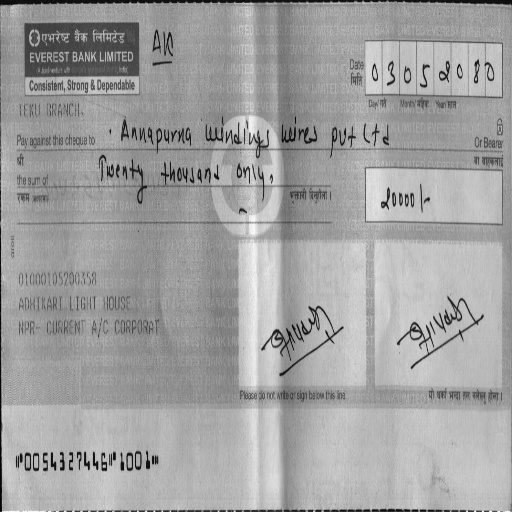 एभरेष्ट बैंक लिमिटेड
EVEREST BANK LIMITED
Consistent, Strong & Dependable
AK
Date
मिति
03052080
Day/गते Month/महिना Year/साल
TEKU BRANCH.
Pay against this cheque to Annapurna Windings Wires pvt Ltd Or Bearer
श्री वा वाहकलाई
the sum of Twenty thousand only,
रकम भुक्तानी दिनुहोला।
20000/-
01000105200358
ADHIKARI LIGHT HOUSE
NPR- CURRENT A/C CORPORAT
Please do not write or sign below this line.
⑈0054327446⑈1001⑈